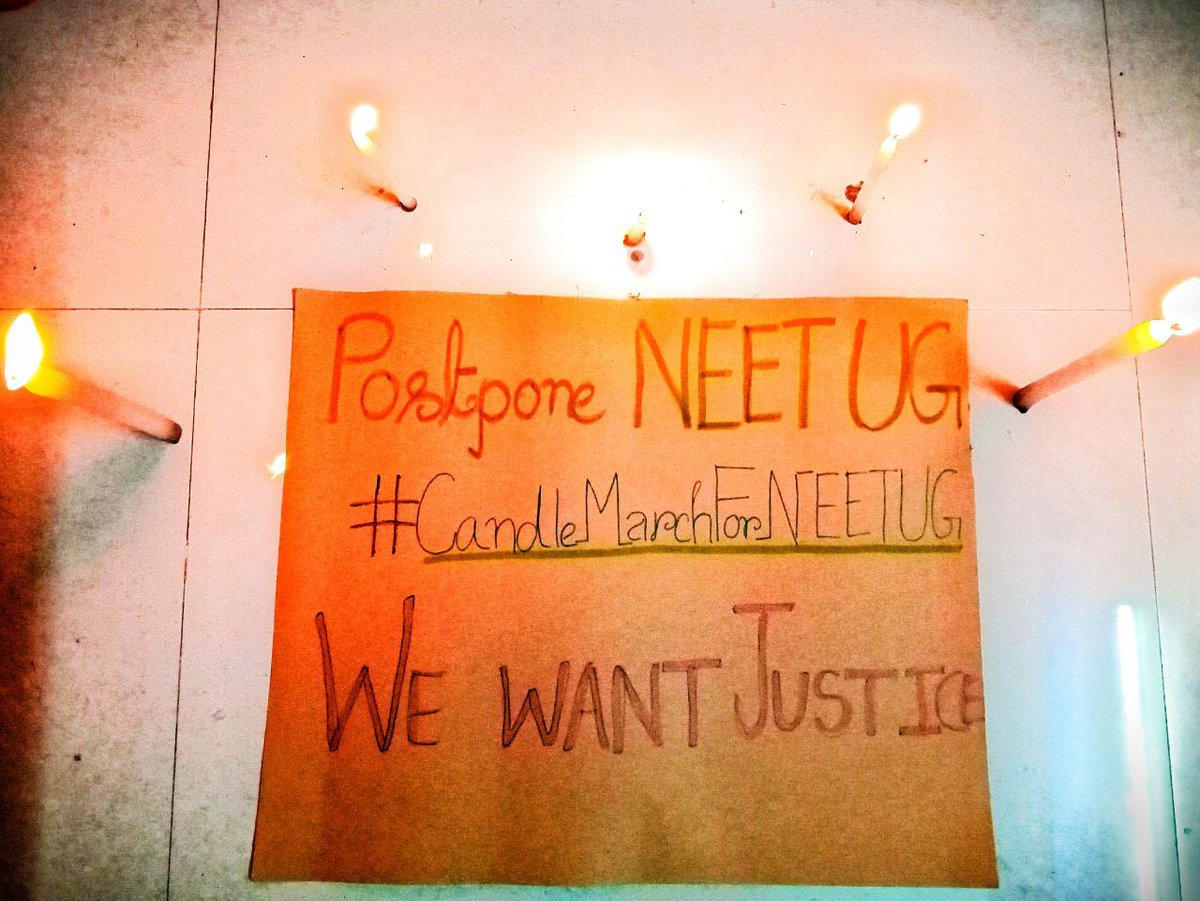 Postpone NEET UG
#CandleMarchForNEETUG
WE WANT JUSTICE